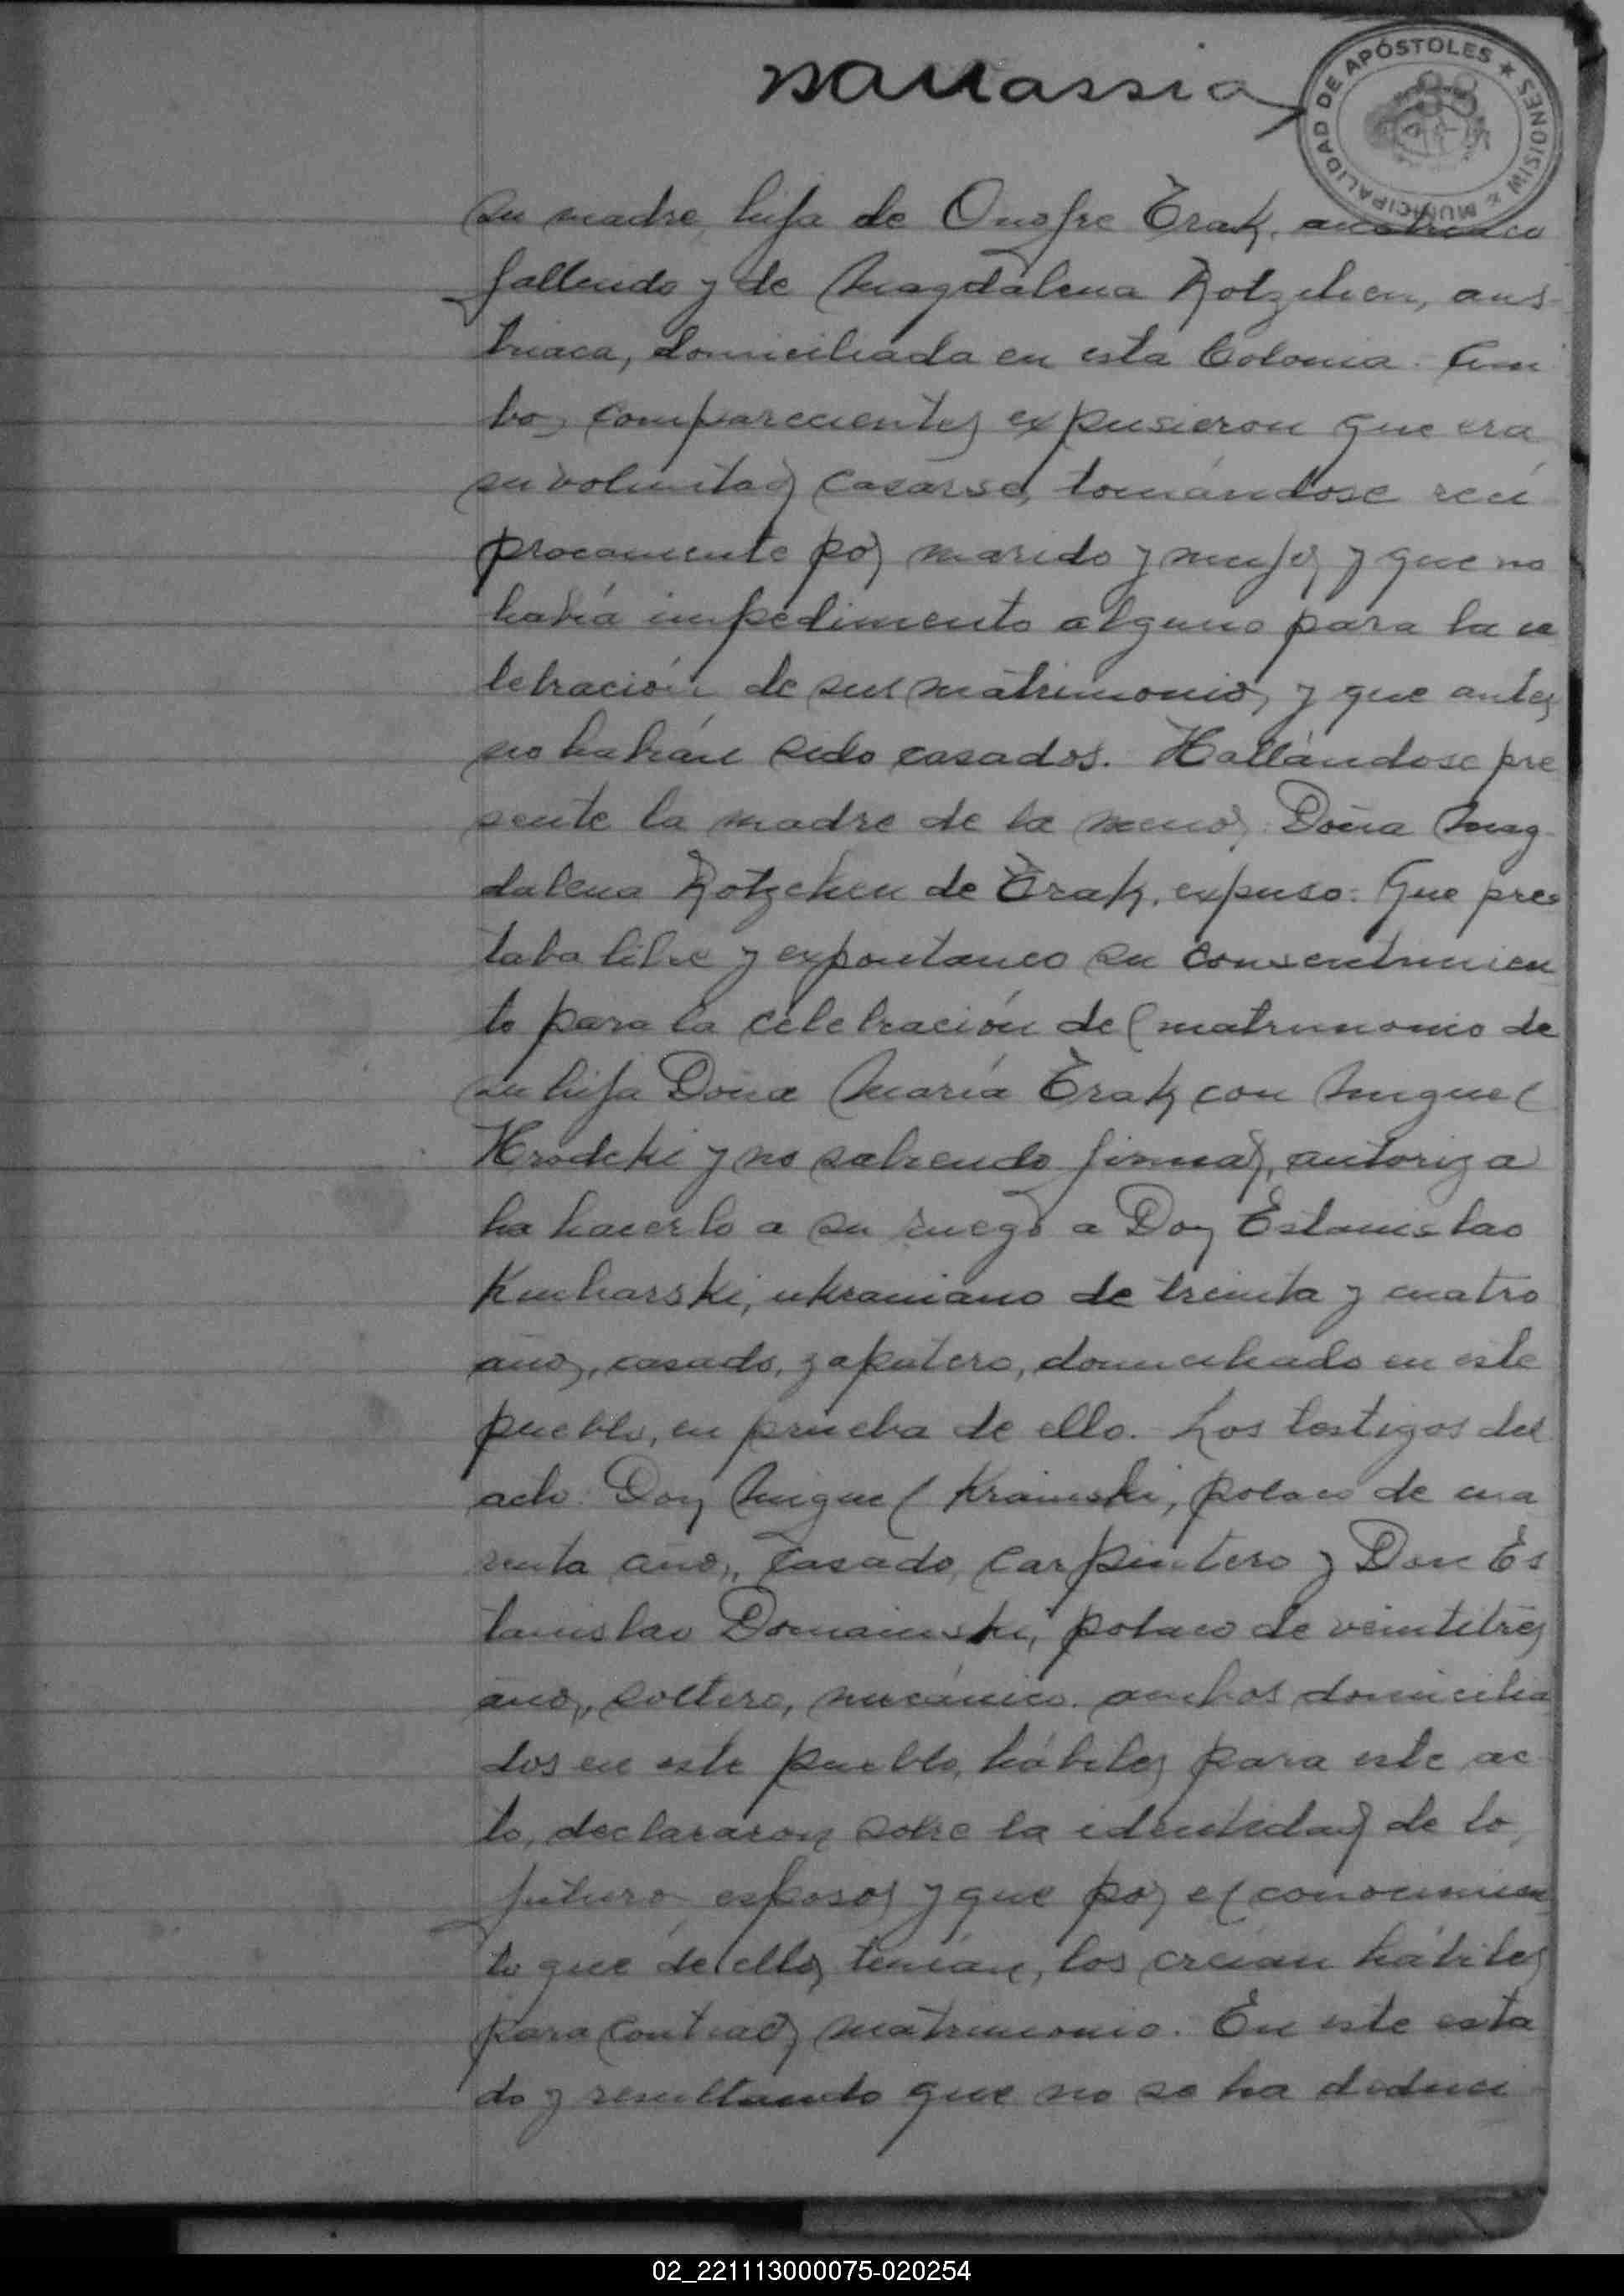 MUNICIPALIDAD DE APÓSTOLES ★ MISIONES
su madre, hija de Onofre Erak,
fallecido y de Magdalena Kotzchen, aus-
triaca, domiciliada en esta Colonia. Am
bos comparecientes expusieron que era
su voluntad casarse, tomándose recí
procamente por marido y mujer y que no
había impedimento alguno para la ce
lebración de su matrimonio, y que antes
no habían sido casados. Hallándose pre
sente la madre de la menor, Doña Mag-
dalena Kotzchen de Erak, expuso: Que pres
taba libre y expontaneo su consentimien
to para la celebración del matrimonio de
su hija Doña María Erak con Miguel
Hrodeki y no sabiendo firmar, autoriza
ha hacerlo a su ruego a Don Estanislao
Kucharski, ukraniano de treinta y cuatro
años, casado, zapatero, domiciliado en este
pueblo, en prueba de ello. Los testigos del
acto: Don Miguel Krainski, polaco de cua
renta años, casado, carpintero y Don Es
tanislao Domainski, polaco de veintitrés
años, soltero, mecánico, ambos domicilia
dos en este pueblo, hábiles para este ac
to, declararon sobre la identidad de los
futuros esposos y que por el conocimien
to que de ellos tenían, los creían hábiles
para contraer matrimonio. En este esta
do y resultando que no se ha deduci
02_221113000075-020254